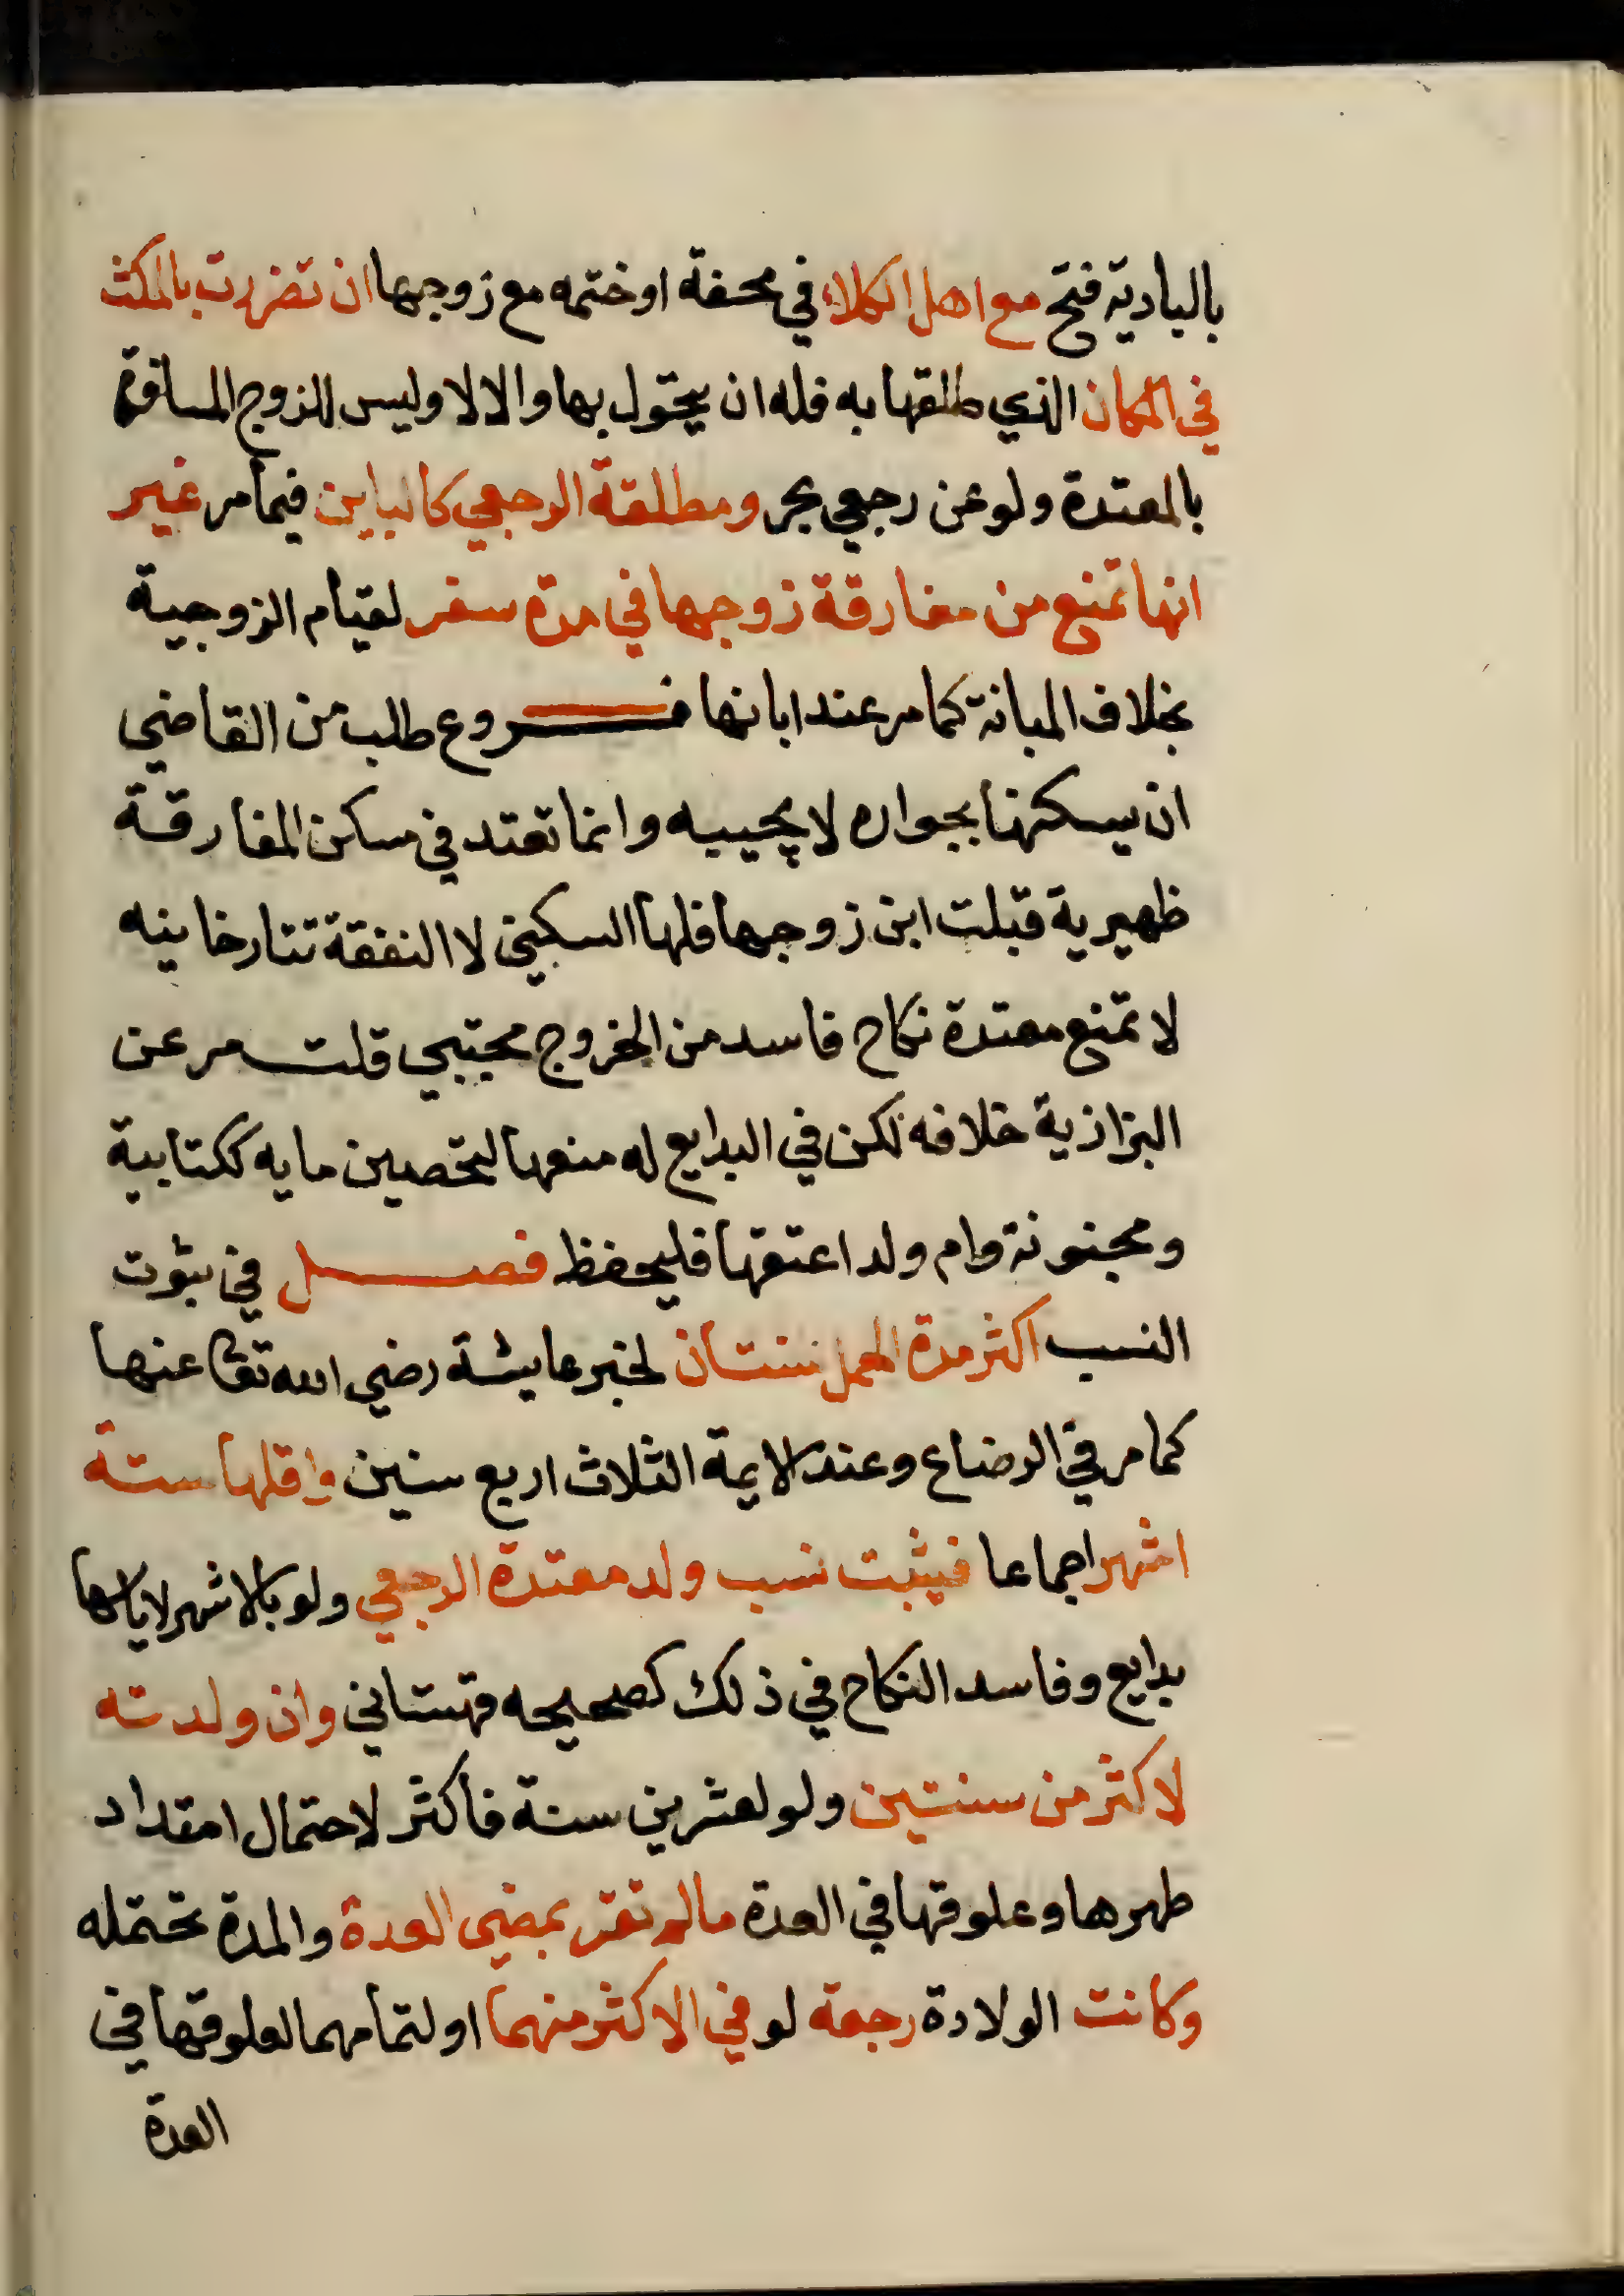 بالبادية فتح مع اهل الكلاء في محفة او ختمه مع زوجها ان تضررت بالمكث
في المكان الذي طلقها به فله ان يتحول بها والا لا وليس للزوج المسافرة
بالمعتدة ولو عن رجعي بحر ومطلقة الرجعي كالباين فيما مر غير
انها تمنع من مفارقة زوجها في مدة سفر لقيام الزوجية
بخلاف المبانة كما مر عند ابانها فروع طلب من القاضي
ان يسكنها بجواره لا يجيبه وانما تعتد في مسكن المفارقة
ظهيرية قبلت ابن زوجها فلها السكني لا النفقة تتارخانيه
لا تمنع معتدة نكاح فاسد من الخروج مجتبي قلت مر عن
البزازية خلافه لكن في البدايع له منعها لتحصين مايه ككتابية
ومجنونة وام ولد اعتقها فليحفظ فصل في ثبوت
النسب اكثر مدة الحمل سنتان لخبر عايشة رضي الله تعا عنها
كما مر في الرضاع وعند الايمة الثلاث اربع سنين واقلها ستة
اشهر اجماعا فيثبت نسب ولد معتدة الرجعي ولو بالاشهر لاياسها
بدايع وفاسد النكاح في ذلك كصحيحه قهستاني وان ولدته
لاكثر من سنتين ولو لعشرين سنة فاكثر لاحتمال امتداد
طهرها وعلوقها في العدة مالم تقر بمضي العدة والمدة تحتمله
وكانت الولادة رجعة لو في الاكثر منهما او لتمامهما لعلوقها في
العدة